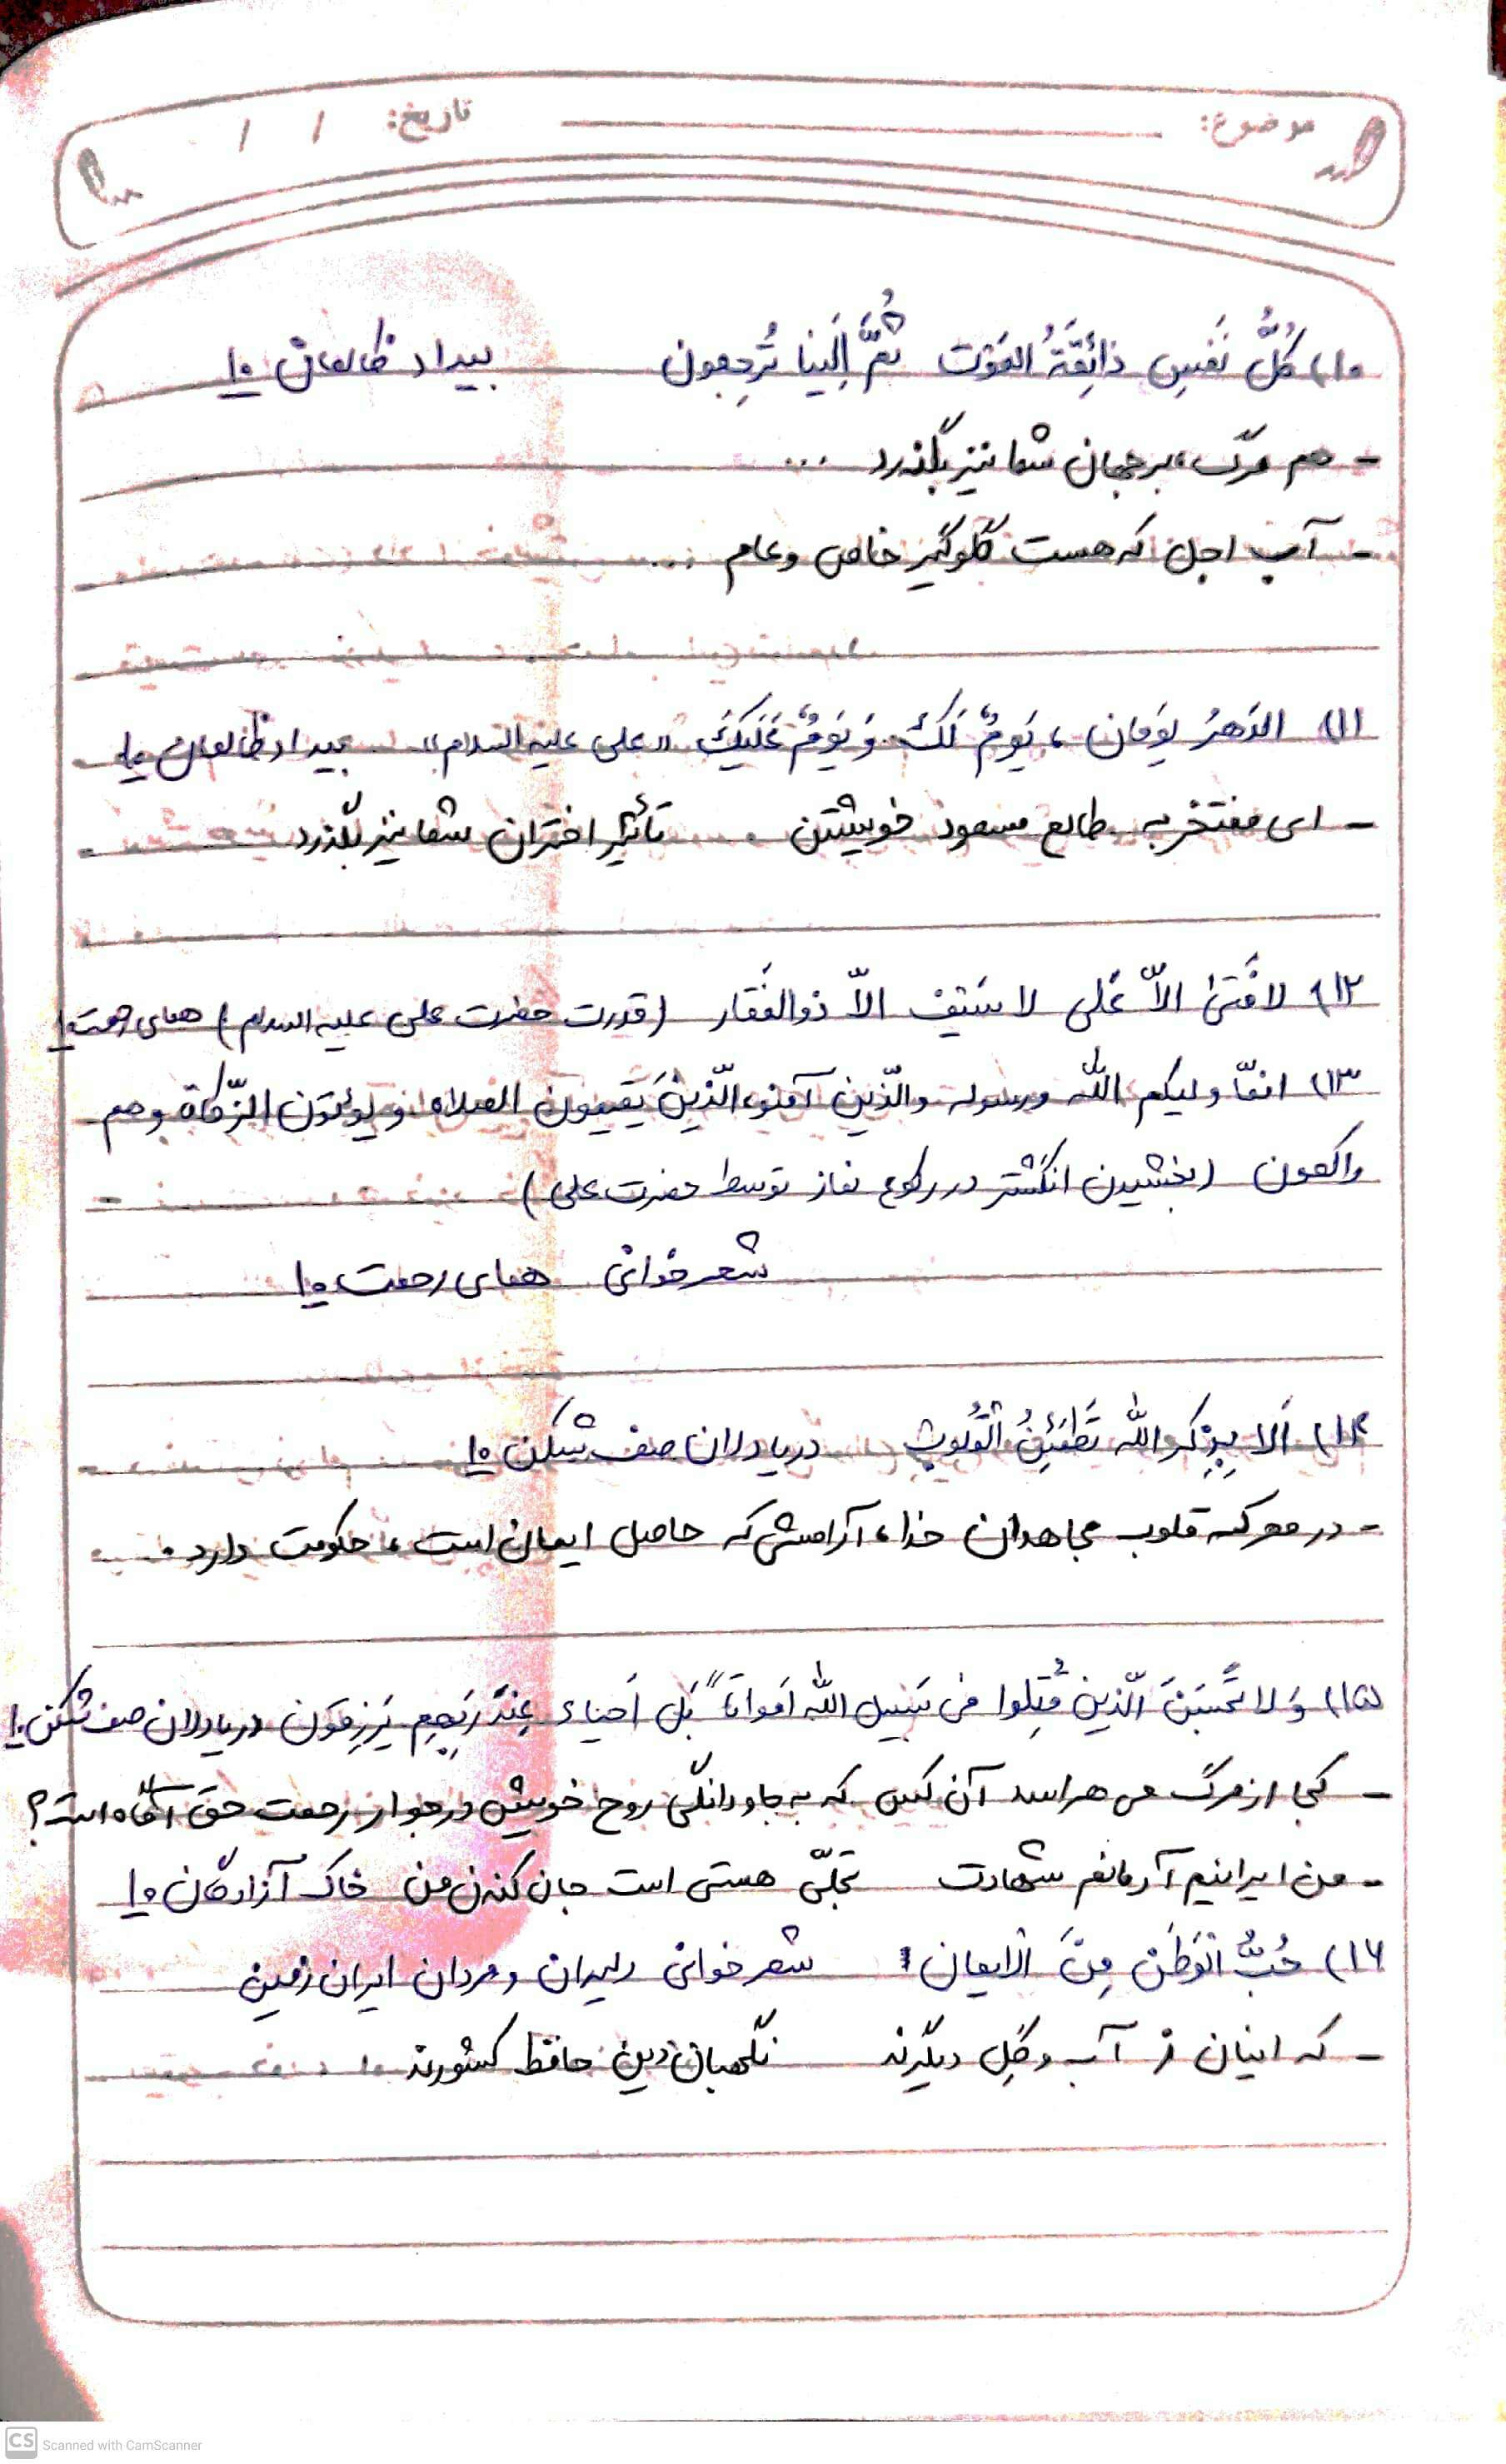 موضوع: تاریخ: / /
۱۰) کُلُّ نَفسٍ ذائِقَةُ المَوْت ثُمَّ اِلَینا تُرجِعون بیداد ظالمان ۱۰
- هم مرگ بر جهان شما نیز بگذرد ...
- آب اجل که هست گلوگیر خاص و عام ...
۱۱) الدَهرُ یَومان ، یَومٌ لَکَ وَ یَومٌ عَلَیکَ «علی علیه السلام» بیداد ظالمان ۱۰
- ای مفتخر به طالع مسعود خویشتن تأثیر اختران شما نیز بگذرد
۱۲) لا فَتیٰ الّا عَلی لا سَیف الّا ذوالفَقار (قدرت حضرت علی علیه السلام) همای رحمت ۱۰
۱۳) انمّا ولیکم الله و رسوله والّذین آمنو، الّذینَ یَقیمون الصلاه و یوئتون الزّکاة و هم
راکعون (بخشیدن انگشتر در رکوع نماز توسط حضرت علی)
شعرخوانی همای رحمت ۱۰
۱۴) اَلا بِذِکر الله تَطمَئِنُ القُلوب دریادلان صف شکن ۱۰
- در معرکه قلوب مجاهدان خدا، آرامشی که حاصل ایمان است، حکومت دارد.
۱۵) وَلا تَحسَبَنَ الّذین قُتِلوا فی سَبیل الله اَمواتاً بَل اَحیاء عِندَ رَبِّهِم یَرزِقون دریادلان صف شکن ۱۰
- کجا از مرگ می هراسد آن کس که به جاودانگی روح خویش در جوار رحمت حق آگاه است؟
- من ایرانیم آرمانم شهادت تجلّی هستی است جان کندن من خاک آزادگان ۱۰
۱۶) حُبُّ الوَطَن مِنَ الایمان شعرخوانی دلیران و مردان ایران زمین
- که اینان ز آب و گِل دیگرند نگهبان دین حافظ کشورند
CS Scanned with CamScanner